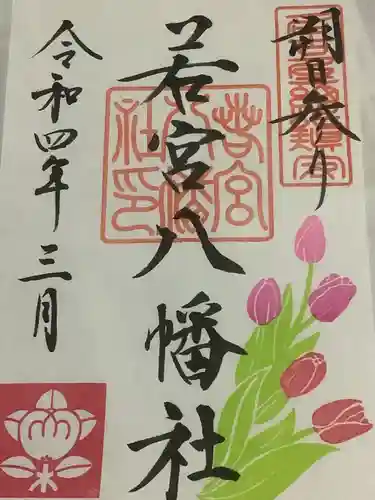 朔日参り
若宮八幡社
令和四年三月
若宮八幡社印